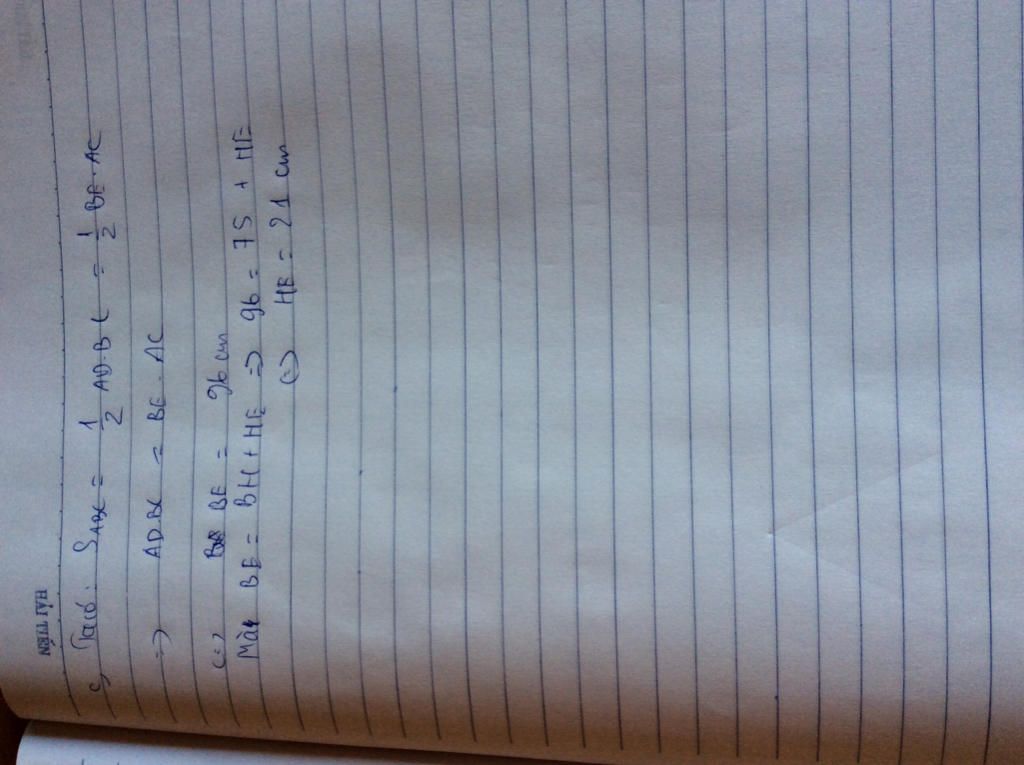 HẢI TIẾN
c, Ta có: S_ABC = 1/2 AD.BC = 1/2 BE.AC
=> AD.BC = BE.AC
(=) BE = 96 cm
Mà BE = BH + HE => 96 = 75 + HE
(=) HE = 21 cm